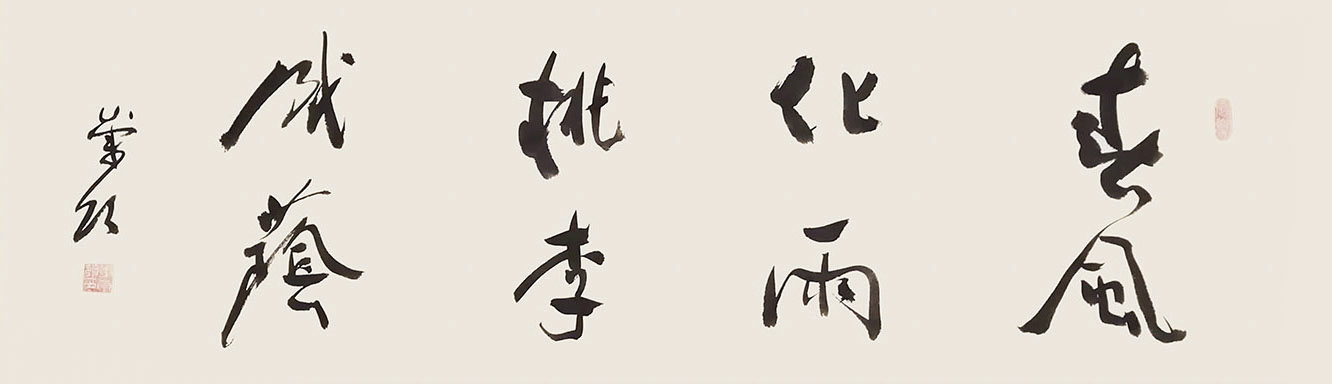 春風
化雨
桃李
成蔭